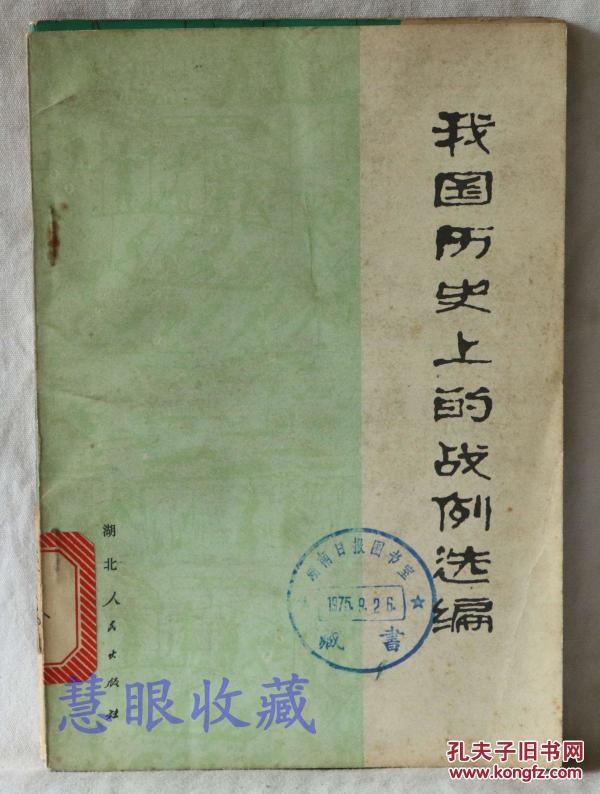 我国历史上的战例选编
湖北人民出版社
湖南日报图书室
1975.9.26.
藏書
慧眼收藏
孔夫子旧书网
www.kongfz.com